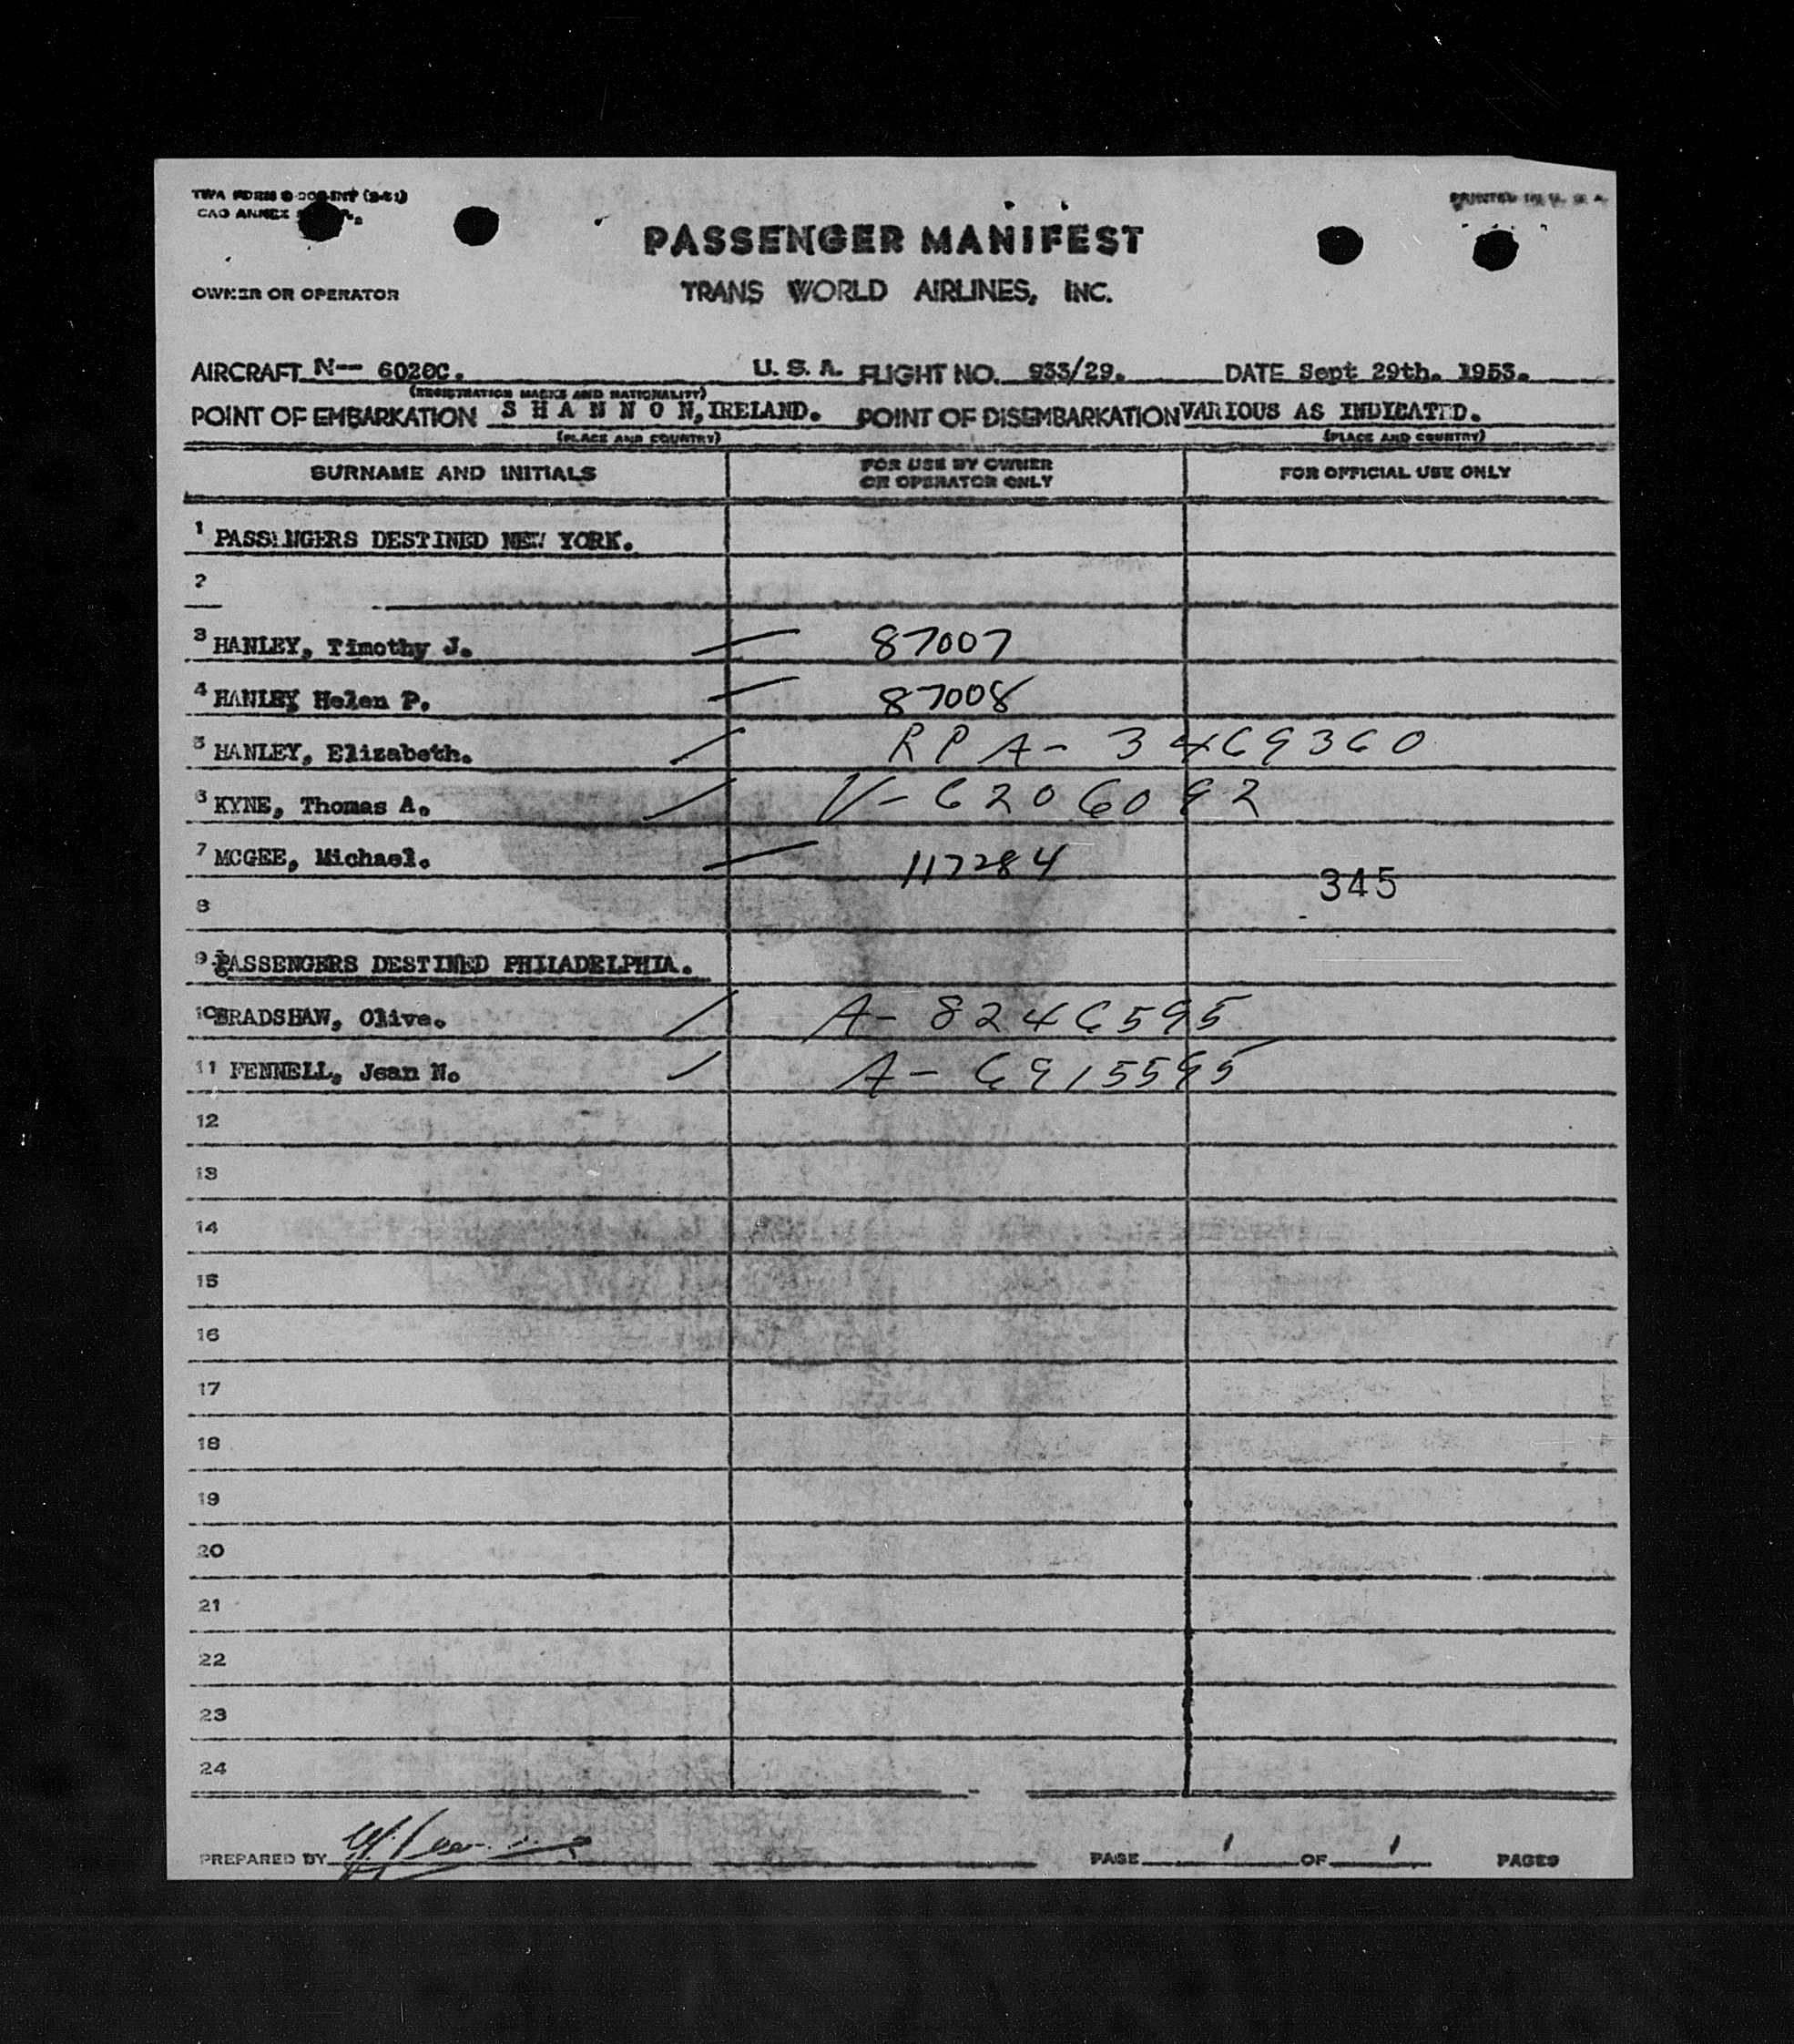 TWA FORM
CAO ANNEX
PRINTED IN U. S. A.
PASSENGER MANIFEST
OWNER OR OPERATOR
TRANS WORLD AIRLINES, INC.
AIRCRAFT N-- 6020C. U. S. A. FLIGHT NO. 933/29. DATE Sept 29th. 1953.
(REGISTRATION MARKS AND NATIONALITY)
POINT OF EMBARKATION S H A N N O N, IRELAND. POINT OF DISEMBARKATION VARIOUS AS INDICATED.
(PLACE AND COUNTRY) (PLACE AND COUNTRY)
SURNAME AND INITIALS FOR USE BY OWNER OR OPERATOR ONLY FOR OFFICIAL USE ONLY
1 PASSENGERS DESTINED NEW YORK.
2
3 HANLEY, Timothy J. 87007
4 HANLEY Helen P. 87008
5 HANLEY, Elizabeth. RPA- 3469360
6 KYNE, Thomas A. V- 6206092
7 MCGEE, Michael. 117284
345
8
9 PASSENGERS DESTINED PHILADELPHIA.
10 BRADSHAW, Olive. A- 8246595
11 FENNELL, Jean N. A- 6915595
12
13
14
15
16
17
18
19
20
21
22
23
24
PREPARED BY PAGE 1 OF 1 PAGES